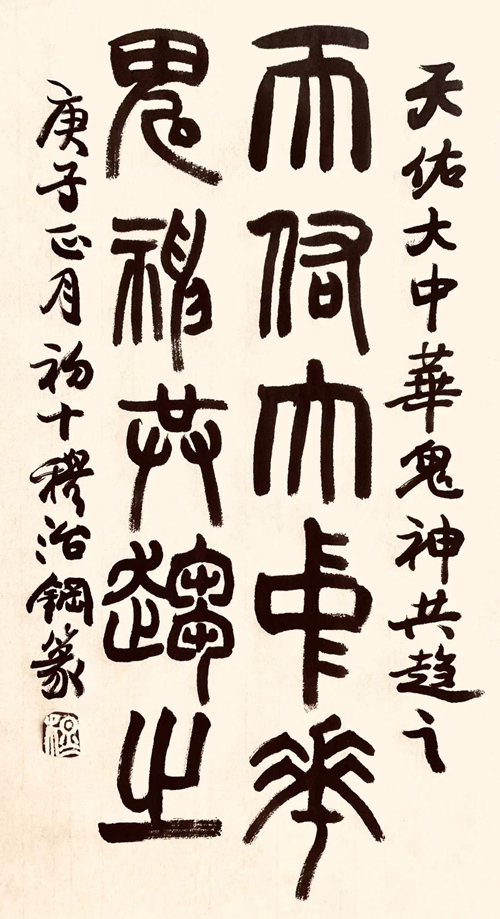 天佑大中華鬼神共趨之
天佑大中華
鬼神共趨之
庚子正月初十穆治鋼篆